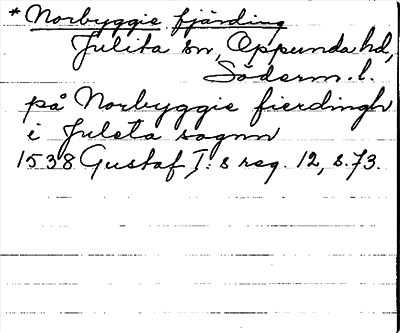 * Norbyggie fjärding
Julita sn, Oppunda hd,
Söderm. l.
på Norbyggie fierdingh
i Juleta sognn
1538 Gustaf I:s reg. 12, s. 73.